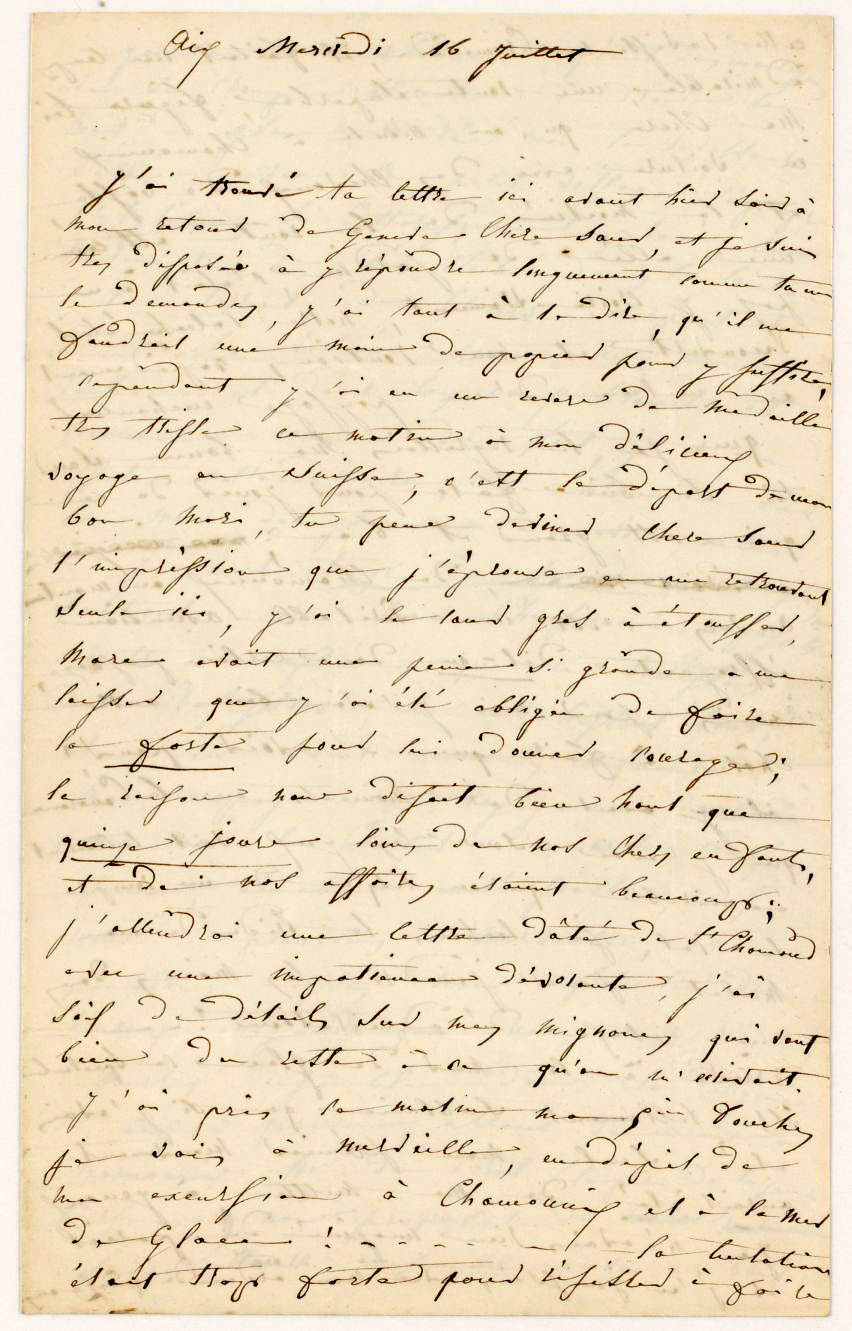 Aix Mercredi 16 Juillet
J'ai trouvé ta lettre ici avant hier soir à
mon retour de Genève Chère Sœur, et je suis
très disposée à y répondre longuement comme tu me
le demandes, j'ai tant à te dire, qu'il me
faudrait une main de papier pour y suffire,
cependant j'ai eu un revers de médaille
très triste ce matin à mon délicieux
voyage en Suisse, c'est le départ de mon
bon mari, tu peux deviner chère Sœur
l'impression que j'éprouve en me retrouvant
seule ici, j'ai le cœur gros à étouffer,
Marc avait une peine si grande à me
laisser que j'ai été obligée de faire
la forte pour lui donner courage;
la raison nous disait bien haut que
quinze jours loin de nos chers enfants,
et de nos affaires étaient beaucoup;
j'attendrai une lettre daté de St Chamond
avec une impatience dévorante, j'ai
soif de détails sur mes mignones qui vont
bien du reste à ce qu'on m'écrivait.
J'ai pris ce matin ma Douche,
je vais à merveille, en dépit de
mon excursion à Chamounix et à la mer
de Glace ! - - - - - - la tentation
était trop forte pour résister à faire